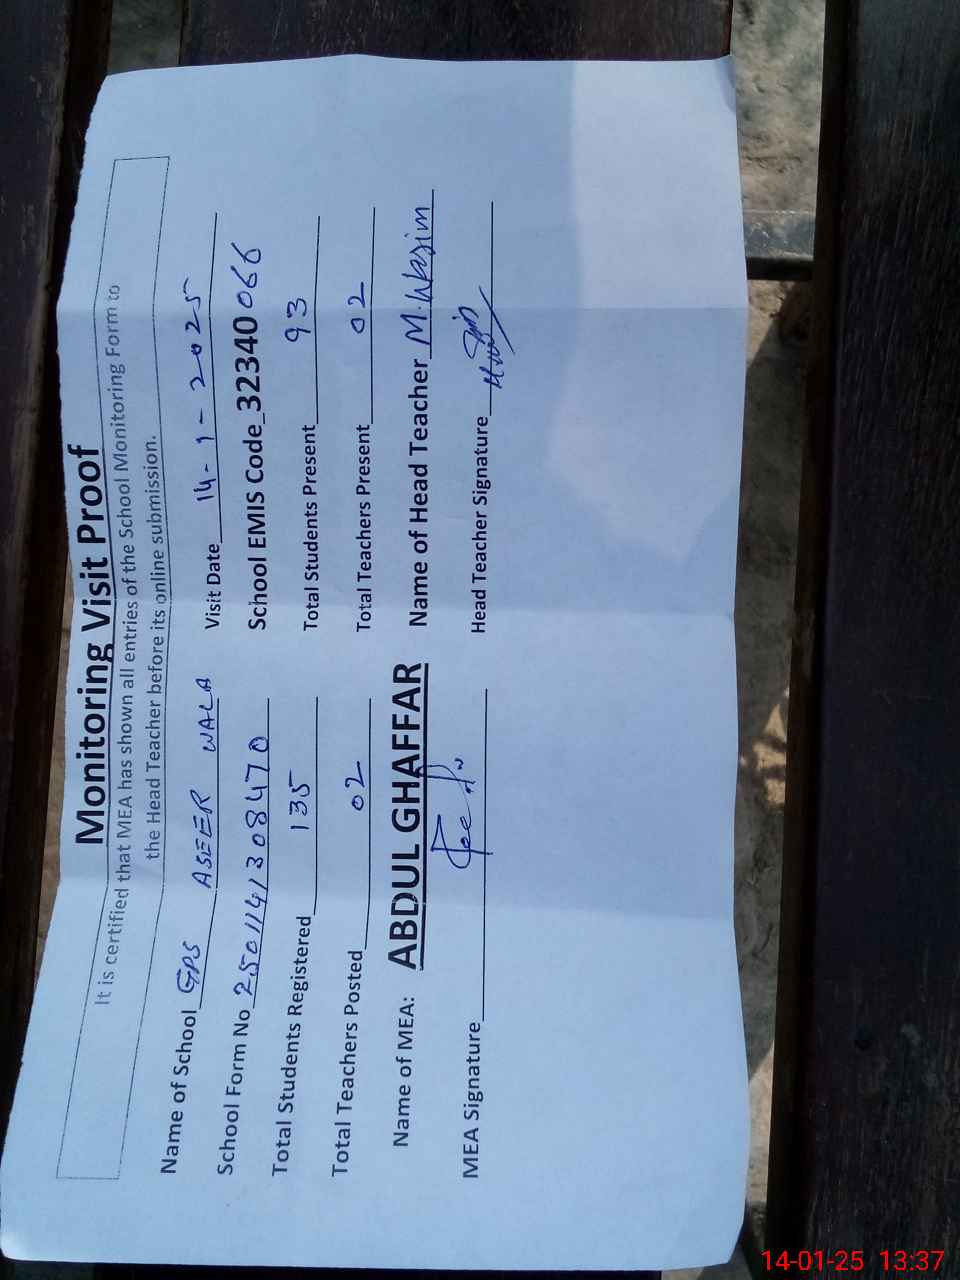 Monitoring Visit Proof
It is certified that MEA has shown all entries of the School Monitoring Form to
the Head Teacher before its online submission.
Name of School GPS ASEER WALA Visit Date 14-1-2025
School Form No 2501141308470 School EMIS Code_32340066
Total Students Registered 135 Total Students Present 93
Total Teachers Posted 02 Total Teachers Present 02
Name of MEA: ABDUL GHAFFAR Name of Head Teacher M. Wasim
MEA Signature Head Teacher Signature
14-01-25 13:37